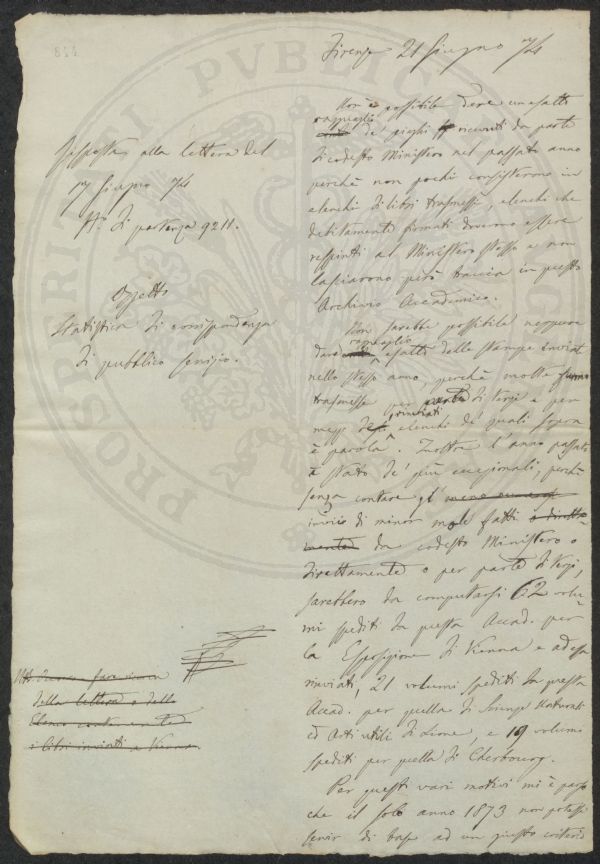 Firenze 21 Giugno 74
Risposta alla lettera del
17 Giugno 74
N.º di partenza 9211.
Oggetto
Statistica di corrispondenza
di pubblico servizio.
Non è possibile dare un esatto
ragguaglio
de' pieghi ricevuti da parte
di codesto Ministero nel passato anno
perchè non pochi consisterono in
elenchi di libri trasmessi, elenchi che
debitamente firmati dovevano essere
respinti al Ministero stesso e non
lasciarono però traccia in questo
Archivio Accademico.
Non sarebbe possibile neppure
ragguaglio
dare esatto delle stampe inviate
nello stesso anno, perchè molte furono
trasmesse per parte di terzi e per
rinviati
mezzo de' elenchi de' quali sopra
è parola. Inoltre l'anno passato
è stato de' più eccezionali, perchè
senza contare gl'
invii di minor mole fatti o diretta-
mente da codesto Ministero o
direttamente o per parte di terzi,
sarebbero da computarsi 62 volu-
mi spediti da questa Accad. per
la Esposizione di Vienna e adesso
rinviati, 21 volumi spediti da questa
Accad. per quella di Scienze Naturali
ed Arti utili di Lione, e 19 volumi
spediti per quella di Cherbourg.
Per questi vari motivi mi è parso
che il solo anno 1873 non potesse
servir di base ad un giusto criterio
della lettera e dello
elenco
i libri inviati a Vienna.
PROSPERITATI PUBLICAE